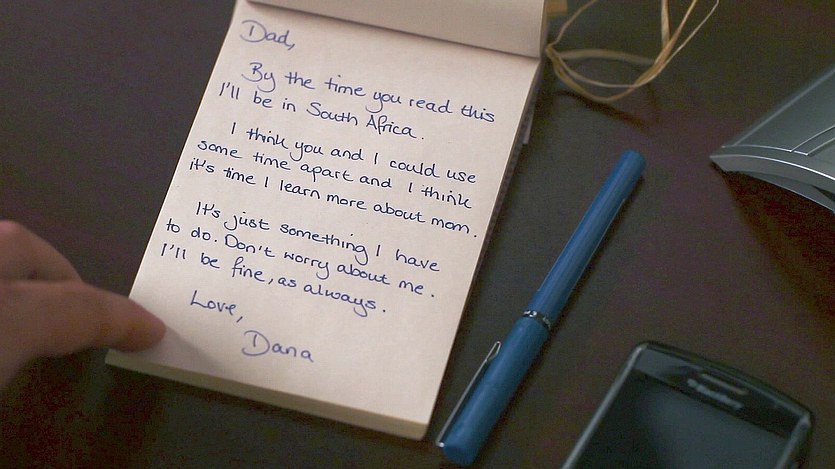 Dad,
By the time you read this
I'll be in South Africa.
I think you and I could use
some time apart and I think
it's time I learn more about mom.
It's just something I have
to do. Don't worry about me.
I'll be fine, as always.
Love,
Dana